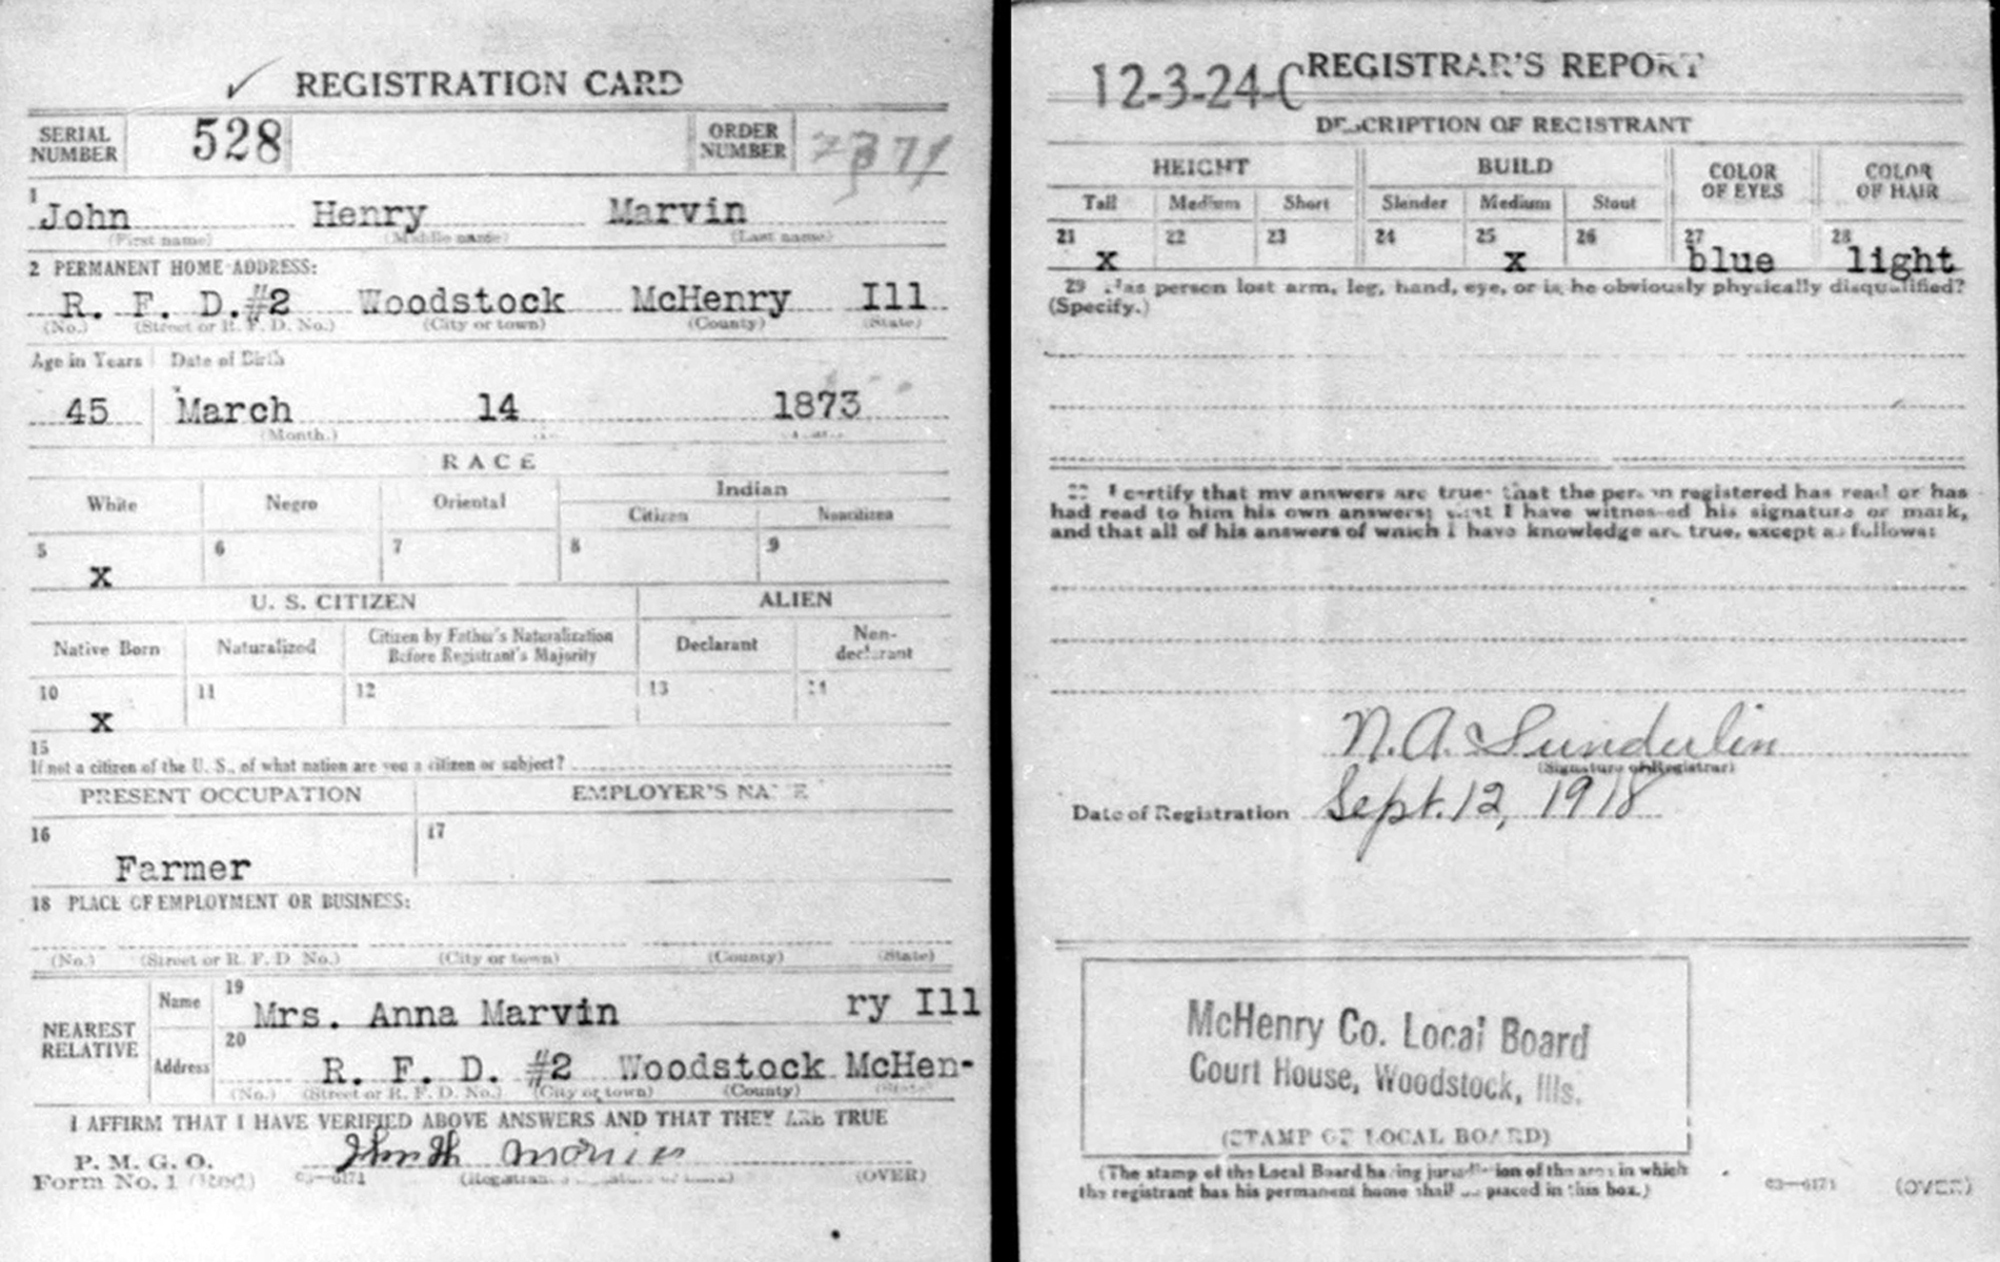 REGISTRATION CARD
SERIAL NUMBER 528 ORDER NUMBER
1 John Henry Marvin
(First name) (Middle name) (Last name)
2 PERMANENT HOME ADDRESS:
R. F. D. #2 Woodstock McHenry Ill
(No.) (Street or R. F. D. No.) (City or town) (County) (State)
Age in Years Date of Birth
45 March 14 1873
(Month.)
RACE
White Negro Oriental Indian
Citizen Noncitizen
5 6 7 8 9
x
U. S. CITIZEN ALIEN
Native Born Naturalized Citizen by Father's Naturalization Before Registrant's Majority Declarant Non-declarant
10 11 12 13 14
x
15
If not a citizen of the U. S., of what nation are you a citizen or subject?
PRESENT OCCUPATION EMPLOYER'S NAME
16 17
Farmer
18 PLACE OF EMPLOYMENT OR BUSINESS:
(No.) (Street or R. F. D. No.) (City or town) (County) (State)
NEAREST RELATIVE
Name 19 Mrs. Anna Marvin ry Ill
Address 20 R. F. D. #2 Woodstock McHen-
(No.) (Street or R. F. D. No.) (City or town) (County) (State)
I AFFIRM THAT I HAVE VERIFIED ABOVE ANSWERS AND THAT THEY ARE TRUE
P. M. G. O.
Form No. 1 (Red) 03—6171 (OVER)
12-3-24-C REGISTRAR'S REPORT
DESCRIPTION OF REGISTRANT
HEIGHT BUILD COLOR OF EYES COLOR OF HAIR
Tall Medium Short Slender Medium Stout
21 22 23 24 25 26 27 28
x x blue light
29 Has person lost arm, leg, hand, eye, or is he obviously physically disqualified?
(Specify.)
I certify that my answers are true; that the person registered has read or has
had read to him his own answers; that I have witnessed his signature or mark,
and that all of his answers of which I have knowledge are true, except as follows:
N. A. Sunderlin
(Signature of Registrar)
Date of Registration Sept. 12, 1918
McHenry Co. Local Board
Court House, Woodstock, Ills.
(STAMP OF LOCAL BOARD)
(The stamp of the Local Board having jurisdiction of the area in which
the registrant has his permanent home shall be placed in this box.)
03—6171 (OVER)